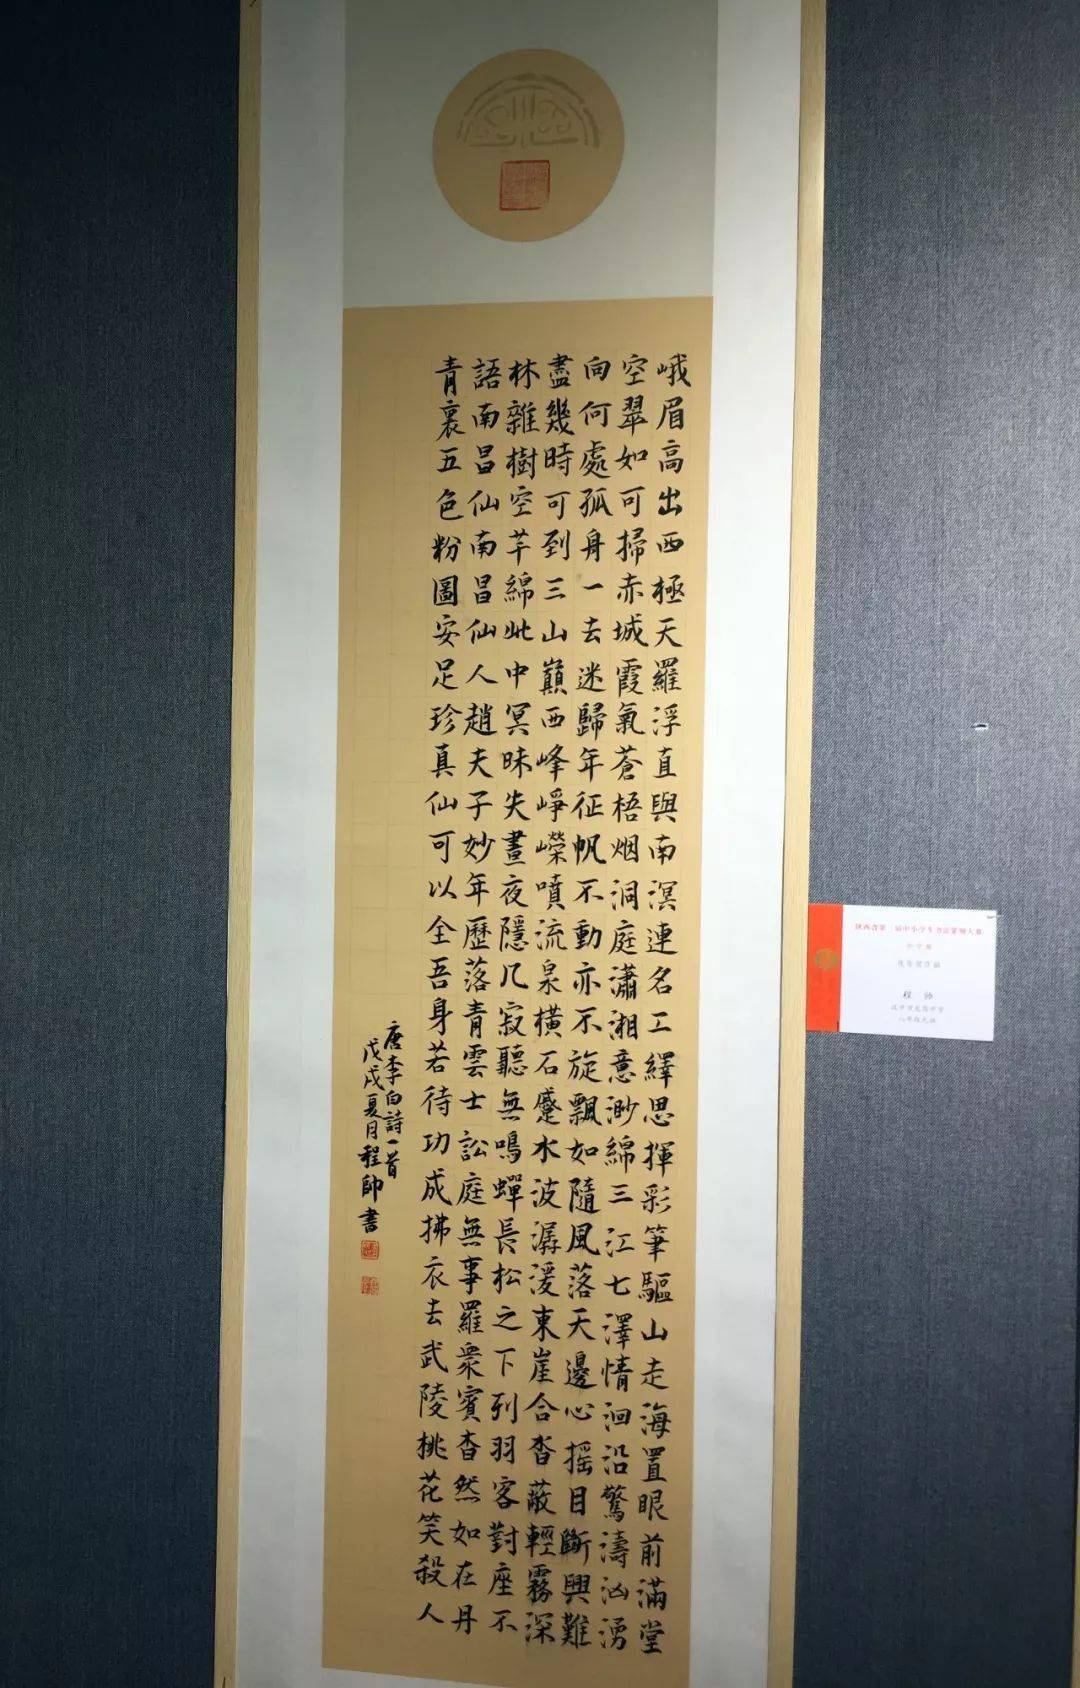 峨眉高出西極天羅浮直與南溟連名工繹思揮彩筆驅山走海置眼前滿堂
空翠如可掃赤城霞氣蒼梧烟洞庭瀟湘意渺綿三江七澤情洄沿驚濤洶湧
向何處孤身一去迷歸年征帆不動亦不旋飄如隨風落天邊心摇目斷興難
盡幾時可到三山巔西峰崢嶸噴流泉橫石蹙水波潺湲東崖合沓蔽輕霧深
林雜樹空芊綿此中冥昧失晝夜隱几寂聽無鳴蟬長松之下列羽客對座不
語南昌仙南昌仙人趙夫子妙年歷落青雲士訟庭無事羅衆賓杳然如在丹
青裏五色粉圖安足珍真仙可以全吾身若待功成拂衣去武陵桃花笑殺人
唐李白詩一首
戊戌夏月程帥書
程 帅